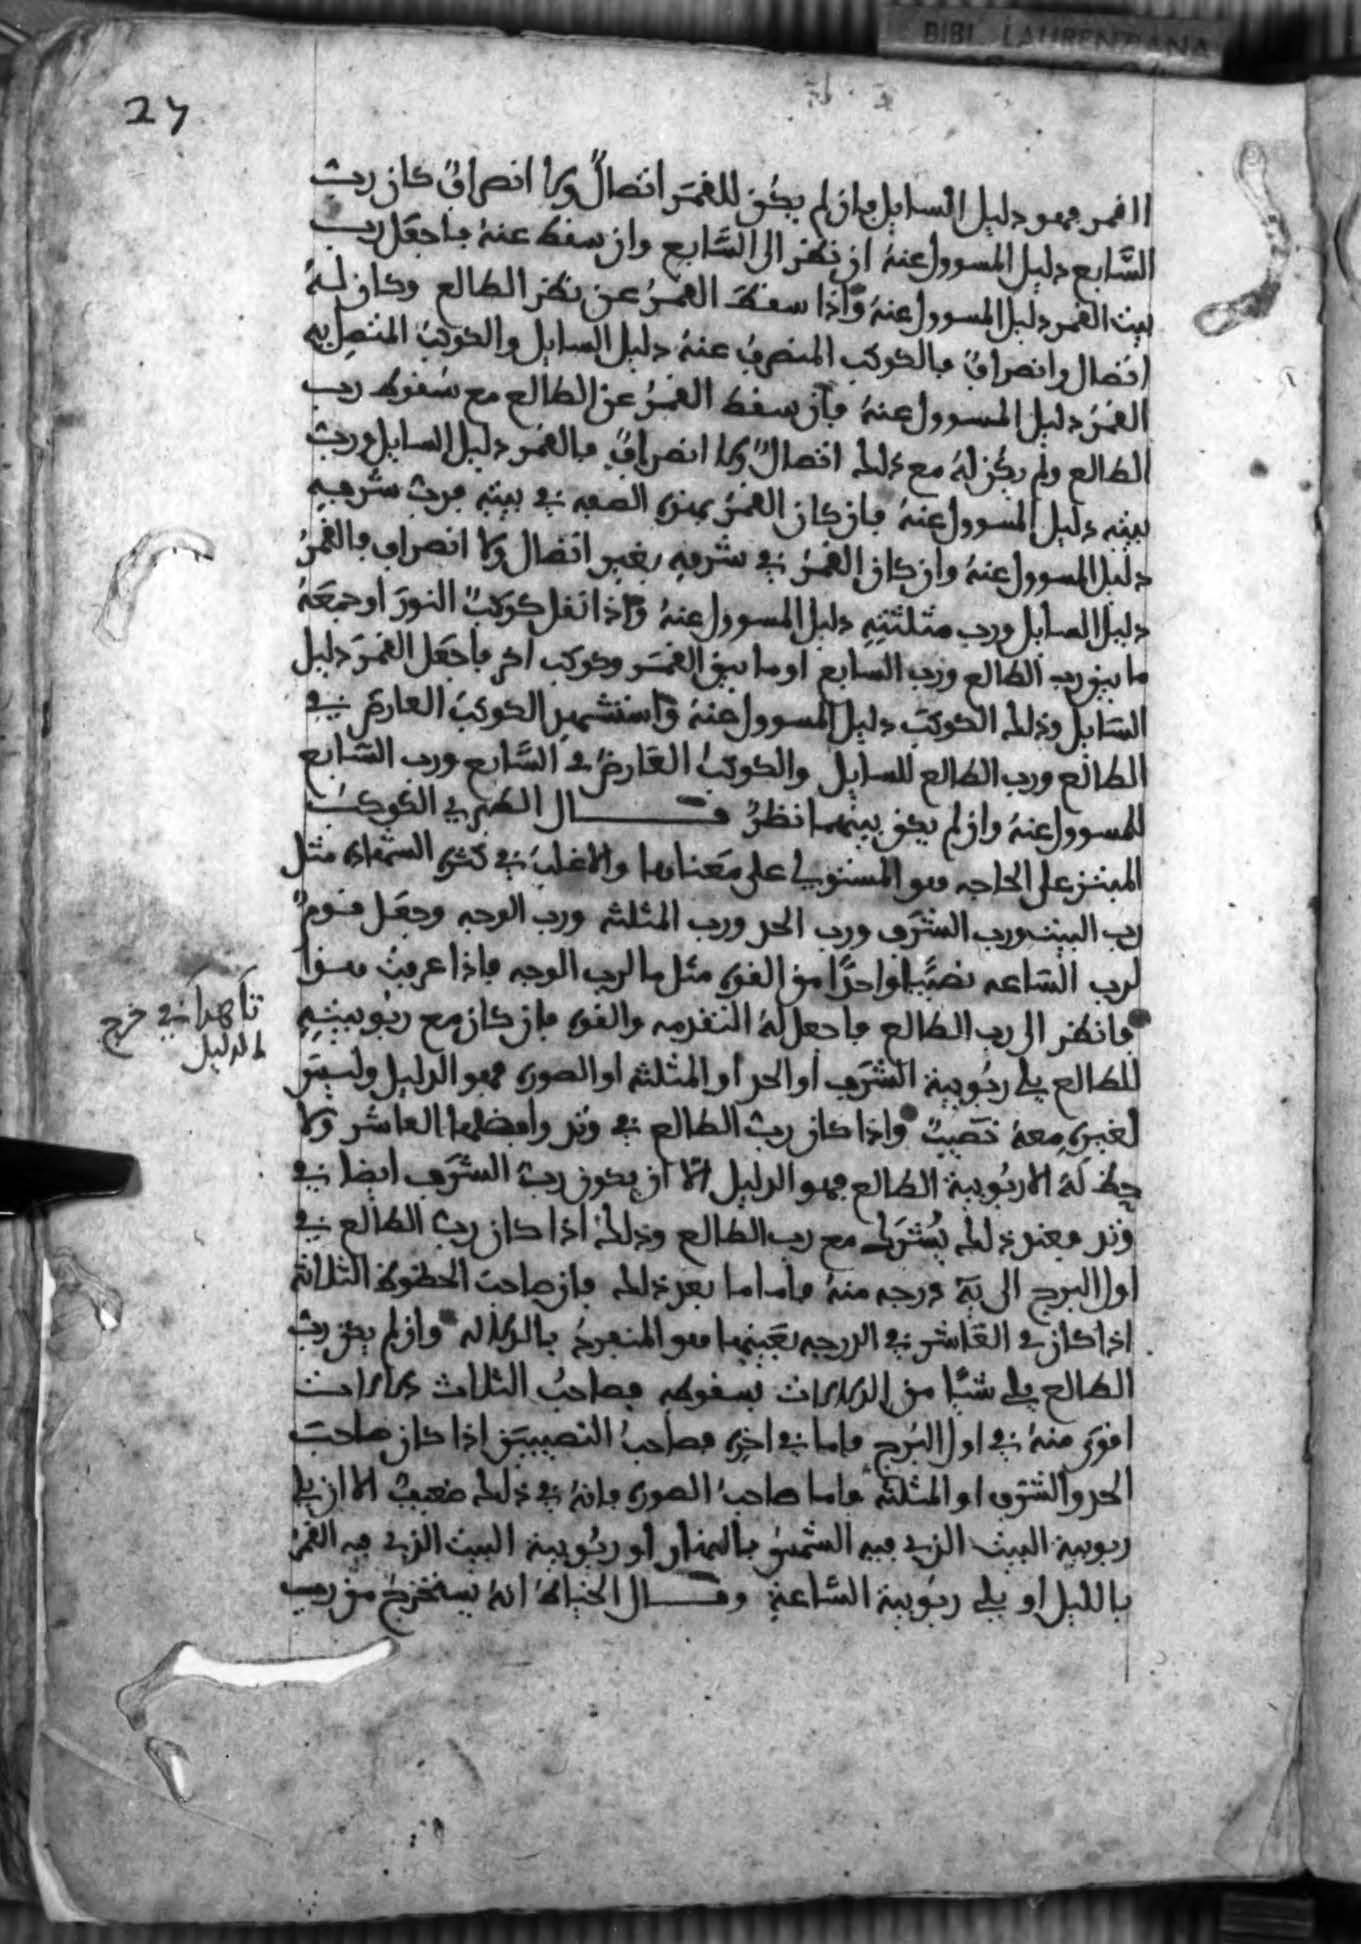 BIBL LAURENZIANA
27
القمر فهو دليل السايل فان لم يكن للقمر اتصال ولا انصراف كان رب
السابع دليل المسوول عنه ان نظر الى السابع وان سقط عنه فاجعل رب
بيت القمر دليل المسوول عنه واذا سقط القمر عن نظر الطالع وكان له
اتصال وانصراف فالكوكب المنصرف عنه دليل السايل والكوكب المتصل به
القمر دليل المسوول عنه فان سقط القمر عن الطالع مع سقوط رب
الطالع ولم يكن له مع ذلك اتصال ولا انصراف فالقمر دليل السايل ورب
بيته دليل المسوول عنه فان كان القمر بهذه الصفه في بيته فرب شرفه
دليل المسوول عنه وان كان القمر في شرفه بغير اتصال ولا انصراف فالقمر
دليل السايل ورب مثلثته دليل المسوول عنه واذا نقل كوكب النور او جمعه
ما بين رب الطالع ورب السابع او ما بين القمر وكوكب اخر فاجعل القمر دليل
السايل وذلك الكوكب دليل المسوول عنه واستشهد الكوكب العارض في
الطالع ورب الطالع للسايل والكوكب العارض في السابع ورب السابع
للمسوول عنه وان لم يكن بينهما نظر قال الطبري الكوكب
المبتز على الحاجه هو المستولي على معناها والاغلب في كثره الشهاده مثل
رب البيت ورب الشرف ورب الحد ورب المثلثه ورب الوجه وجعل قوم
لرب الساعه نصيبا واحدا من القوه مثل ما لرب الوجه فاذا عرفت هذا
فانظر الى رب الطالع فاجعل له التقدمه والقوه فان كان مع ربوبيته
للطالع يلي ربوبية الشرف او الحد او المثلثه او الصوره فهو الدليل وليس
لغيره معه نصيب واذا كان رب الطالع في وتد وافضلها العاشر ولا
حظ له الا ربوبية الطالع فهو الدليل الا ان يكون رب الشرف ايضا في
وتد فعند ذلك يشترك مع رب الطالع وذلك اذا كان رب الطالع في
اول البرج الى يه درجه منه فاما ما بعد ذلك فان صاحب الحظوظ الثلاثه
اذا كان في العاشر في الدرجه بعينها هو المنفرد بالدلاله وان لم يكن رب
الطالع يلي شيا من الدلالات بسقوطه فصاحب الثلاث دلالات
اقوى منه في اول البرج فاما في اخره فصاحب النصيبين اذا كان صاحب
الحد والشرف او المثلثه فاما صاحب الصوره فانه في ذلك ضعيف الا ان يلي
ربوبية البيت الذي فيه الشمس بالنهار او ربوبية البيت الذي فيه القمر
بالليل او يلي ربوبية الساعه وقال الخياط انه يستخرج من رب
في خرج
الدليل